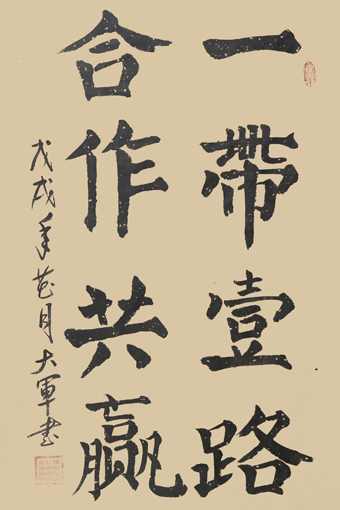 一帶壹路
合作共贏
戊戌年花月大軍書